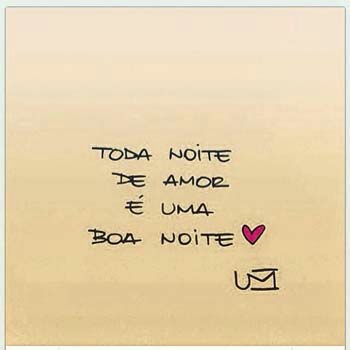 TODA NOITE
DE AMOR
É UMA
BOA NOITE
UM